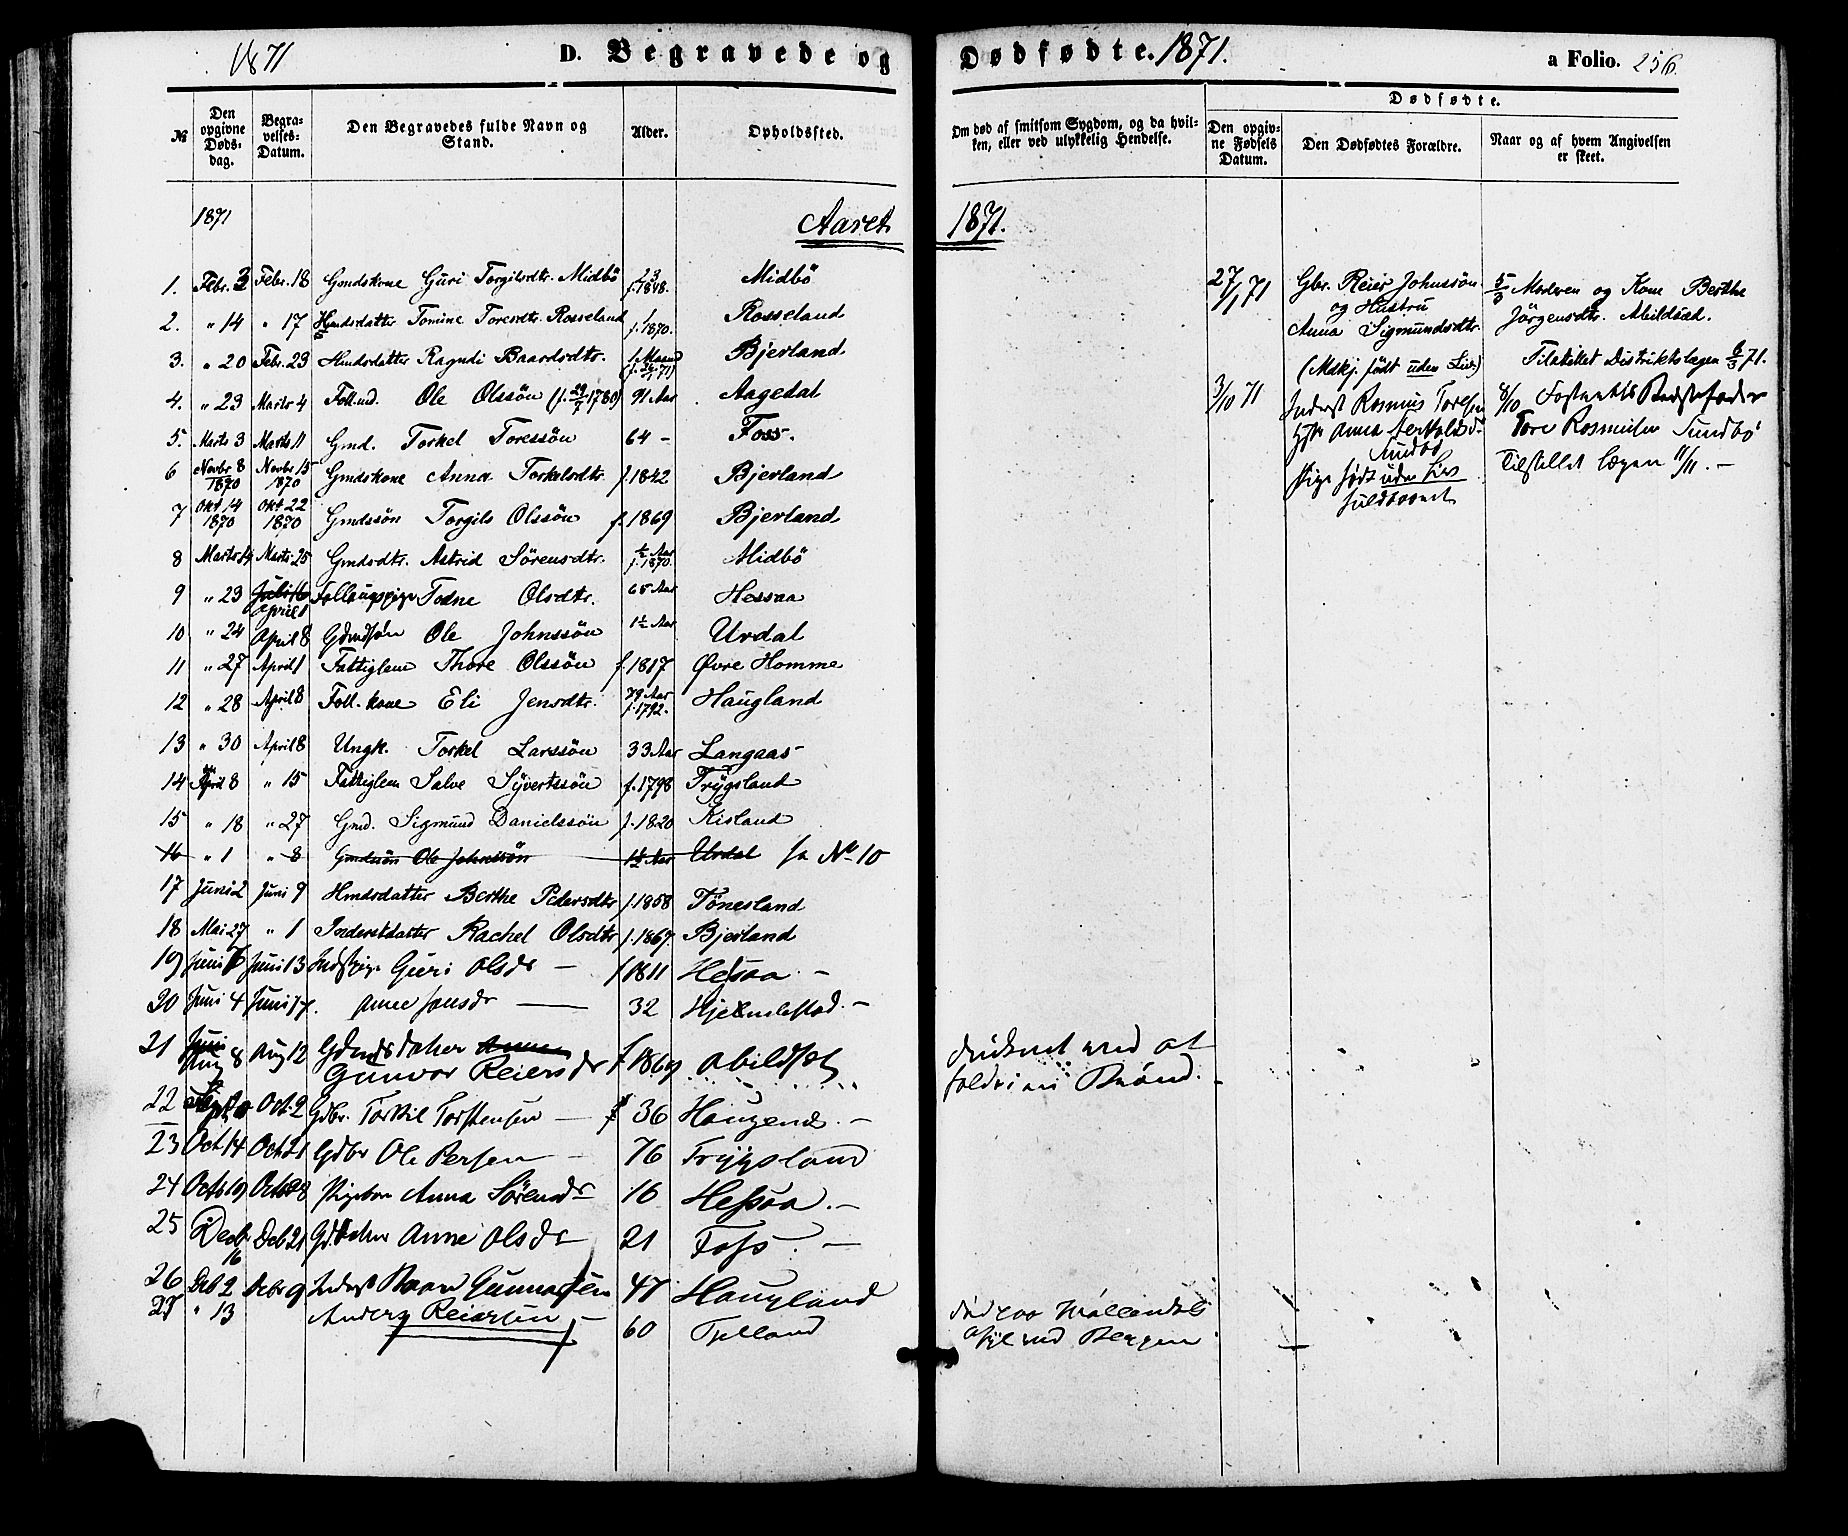 1871 D. Begravede og Dødfødte. 1871. a Folio. 256.
Dødfødte.
№ Den opgivne Døds-dag. Begra-velses-Datum. Den Begravedes fulde Navn og Stand. Alder. Opholdssted. Om død af smitsom Sygdom, og da hvil-ken, eller ved ulykkelig Hendelse. Den opgiv-ne Fødsels Datum. Den Dødfødtes Forældre. Naar og af hvem Angivelsen er skeet.
1871 Aaret 1871.
1. Febr. 3 Febr. 18 Gmdskone Guri Torgilsdtr. Midbö 23 f. 1848. Midbö
2. " 14 " 17 Hmdsdatter Tomine Toresdtr. Rosseland f. 1870. Rosseland
3. " 20 Febr. 23 Hmdsdatter Ragndi Baardsdtr. 1 Maaned Bjerland
4. " 23 Marts 4 Foll.md. Ole Olssön (f. 29/7 1780) 91 Aar Aagedal
5. Marts 3 Marts 11 Gmd. Torkel Toressön 64 - Foss.
6 Novbr 8 1870 Novbr 15 1870 Gmdskone Anna Torkelsdtr. f. 1842 Bjerland
7 Okt 14 1870 Okt 22 1870 Gmdssön Torgils Olssön f. 1869 Bjerland
8 Marts 14 Marts 25 Gmdsdtr. Astrid Sörensdtr. ½ Aar f. 1870. Midbö
9 " 23 Juli 16 April 1 Follaugspige Todne Olsdtr. 65 Aar Hessaa
10 " 24 April 8 Gdmdssön Ole Johnssön 1½ Aar Urdal
11 " 27 April 1 Fattiglem Thore Olssön f. 1817 Øvre Homme
12 " 28 April 8 Foll. kone Eli Jensdtr. 79 Aar f. 1792. Haugland
13 " 30 April 8 Ungk. Torkel Larssön 33 Aar Langaas
14 April 8 " 15 Fattiglem Salve Syvertssön f. 1798 Trygsland
15 " 18 " 27 Gmd. Sigmund Danielssön f. 1820 Kisland
16 " 1 " 8 Gmdssön Ole Johnssön 1½ Aar Urdal fr No 10
17 Juni 2 Juni 9 Hmdsdatter Berthe Pedersdtr f. 1858 Tönesland
18 Mai 27 " 1 Inderstdatter Rachel Olsdtr f. 1867. Bjerland
19 Juni 6 Juni 13 Indstpige Guri Olsdr - f 1811 Hessaa -
20 Juni 4 Juni 17. Anne Jonsdr 32 Hjelmlestad. -
21 Juni Aug 8 Aug 12 Gdmdsdatter Anne Gunvor Reiersdr f 1869 Abildsöt druknet ved at falde i en Brönd.
22 Sept Oct. 2 Gdbr. Torkil Torstensen - 36 Haugend. -
23 Oct 14 Oct 21 Gdbr Ole Persen - 76 Trygsland
24 Octb 19 Octb 28 Pigebar Anna Sörensdr 16 Hessaa. -
25 Decb 16 Deb 21 Gdbdatter Anne Olsdr 21 Foss. -
26 Deb 2 Debr 9 Inderst Baard Gunnarsen 47 Haugland
27 " 13 Anders Reiersen - 60 Tjelland död paa Möllendals asyl ved Bergen
27/1 71 Gbr. Reier Johnssön og Hustru Anna Sigmundsdtr. (Mdkj. født uden Liv) 5/3 Moderen og Kone Berthe Jörgensdtr. Abildsöd. Tilstillet Distriktslægen 6/3 71.
3/10 71 Inderst Rasmus Toresen Hstr Anna Sundbö Pige født uden Liv fuldbaaret 6/10 Fosterets Bedstefader Tore Rasmusen Sundbö Tilstillet Lægen 11/11. -